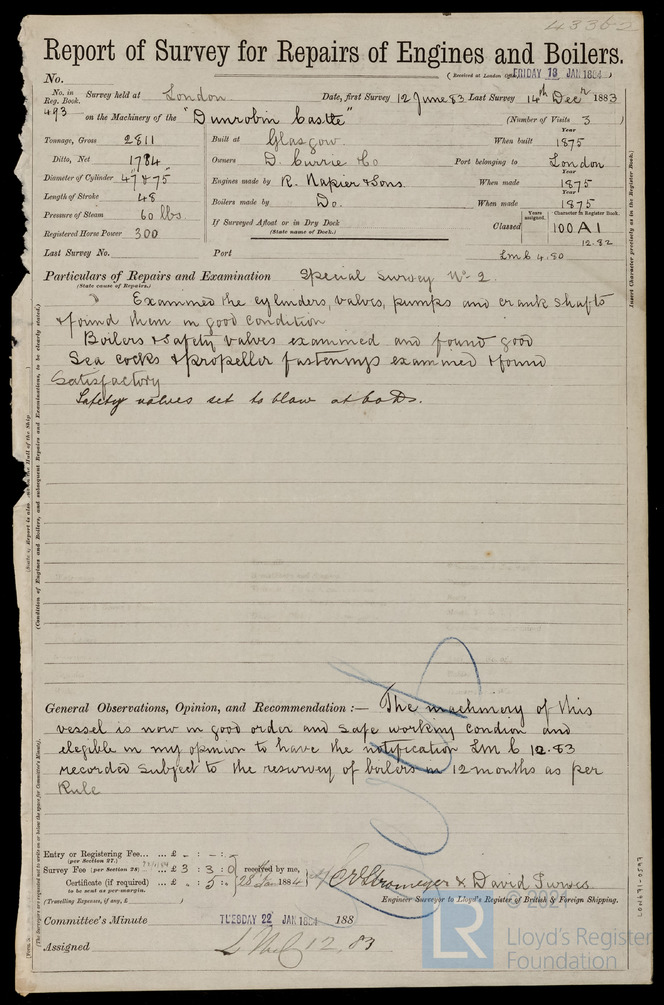 43362
Report of Survey for Repairs of Engines and Boilers.
No. (Received at London Office FRIDAY 18 JAN 1884)
No. in Reg. Book. Survey held at London Date, first Survey 12 June 83 Last Survey 14th Decr 1883
493 on the Machinery of the "Dunrobin Castle" (Number of Visits 3)
Tonnage, Gross 2811 Built at Glasgow When built Year 1875
Ditto, Net 1784 Owners D. Currie & Co Port belonging to London
Diameter of Cylinder 47 & 75 Engines made by R. Napier & Sons. When made Year 1875
Length of Stroke 48 Boilers made by Do. When made Year 1875
Pressure of Steam 60 lbs If Surveyed Afloat or in Dry Dock (State name of Dock.) Classed Years assigned. Character in Register Book. 100 A1
Registered Horse Power 300 12.82
Last Survey No. Port LMC 4.80
Particulars of Repairs and Examination Special Survey No 2
(State cause of Repairs.)
Examined the cylinders, valves, pumps and crank shafts
& found them in good condition
Boilers & safety valves examined and found good
Sea cocks & propeller fastenings examined & found
Satisfactory
Safety valves set to blow at 60 lbs.
General Observations, Opinion, and Recommendation :— The machinery of this
vessel is now in good order and safe working condion and
elegible in my opinion to have the notification LMC 12.83
recorded subject to the resurvey of boilers in 12 months as per
Rule
Entry or Registering Fee... ... £ - : - : -
(per Section 27.)
Survey Fee (per Section 28) £ 3 : 3 : 0 received by me,
Certificate (if required) ... £ . : 5 : 28th Jan 1884
to be sent as per margin.
(Travelling Expenses, if any, £ )
C E Stromeyer & David Purves
Engineer Surveyor to Lloyd's Register of British & Foreign Shipping.
Committee's Minute TUESDAY 22 JAN 1884 188
Assigned LMC 12.83
Insert Character precisely as in the Register Book.
(Condition of Engines and Boilers, and subsequent Repairs and Examinations, to be clearly stated.)
(The Surveyors are requested not to write on or below the space for Committee's Minute).
© 2021
LR
Lloyd's Register
Foundation